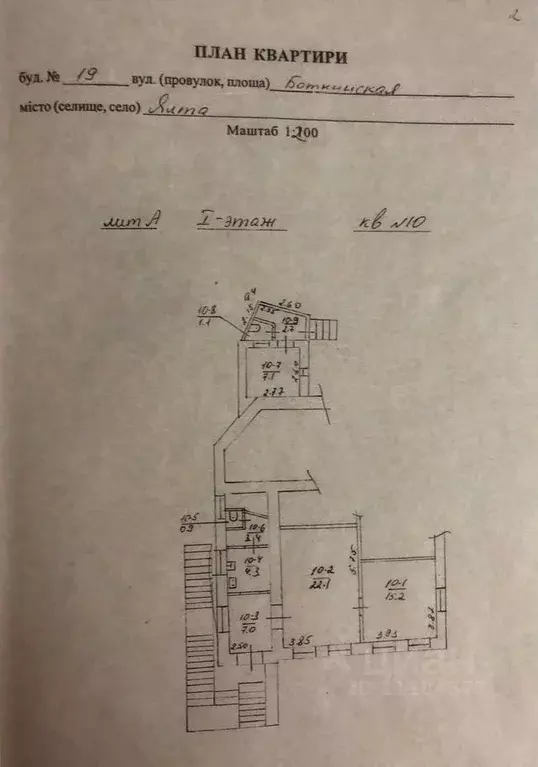 2
ПЛАН КВАРТИРИ
буд. № 19 вул. (провулок, площа) Боткинская
місто (селище, село) Ялта
Маштаб 1:200
лит А I-этаж кв №10
а4
2.60
10-8
1.1
10-9
2.7
10-7
7.1
2.77
10-5
0.9
10-6
3.4
10-4
4.3
10-2
22.1
10-1
15.2
10-3
7.0
2.50
3.85
3.93
3.87